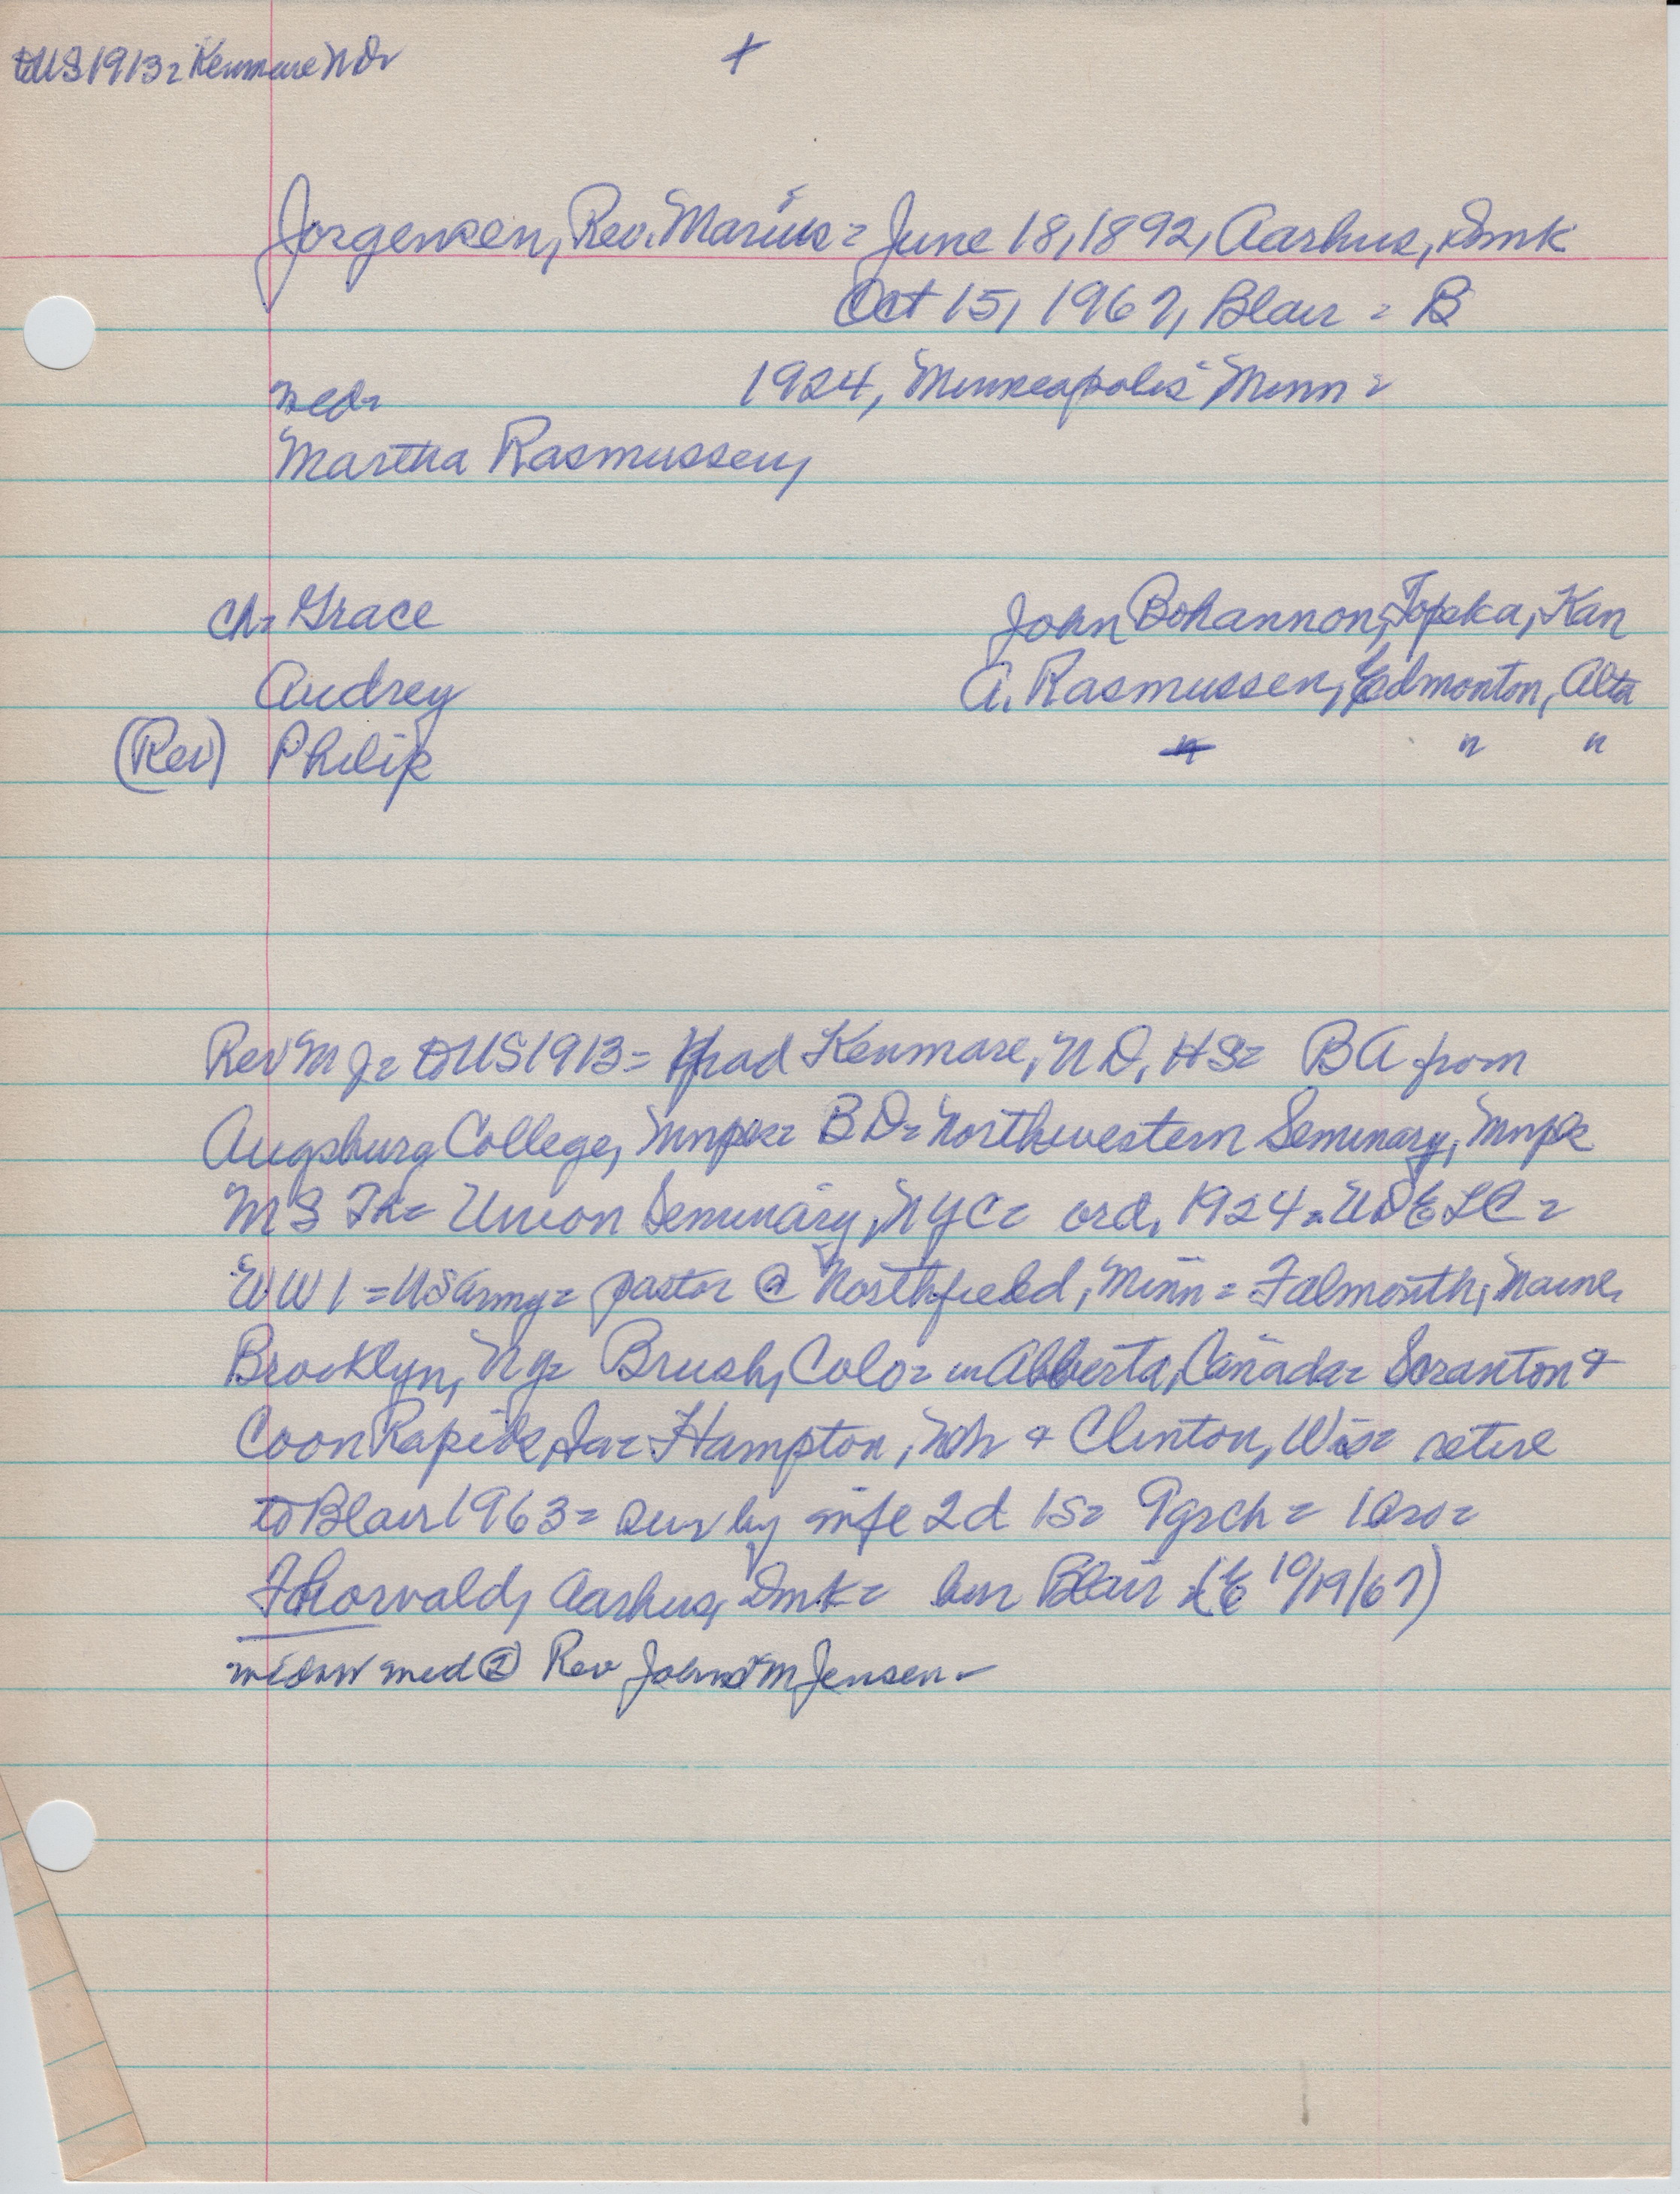 to US 1913 = Kenmare ND =
+
Jorgensen, Rev. Marius = June 18, 1892, Aarhus, Dmk
Oct 15, 1967, Blair = B
med = 1924, Minneapolis Minn =
Martha Rasmussen,
Ch = Grace John Bohannon, Topeka, Kan
Audrey A. Rasmussen, Edmonton, Alta
(Rev) Philip " "
Rev M J = to US 1913 = grad Kenmare, ND, HS = BA from
Augsburg College, Mnpls = BD = Northwestern Seminary, Mnpls
MS Th = Union Seminary, NYC = ord. 1924 = UDELC =
WW 1 = US Army = pastor @ Northfield, Minn = Falmouth, Maine,
Brooklyn, NY = Brush, Colo = in Alberta, Canada = Scranton &
Coon Rapids, Ia = Hampton, Nb & Clinton, Wis = retire
to Blair 1963 = sur by wife 2d 1s = 9grch = 1bro =
Thorvald, Aarhus, Dmk = bur Blair (E 10/19/67)
widow med ② Rev John M Jensen -